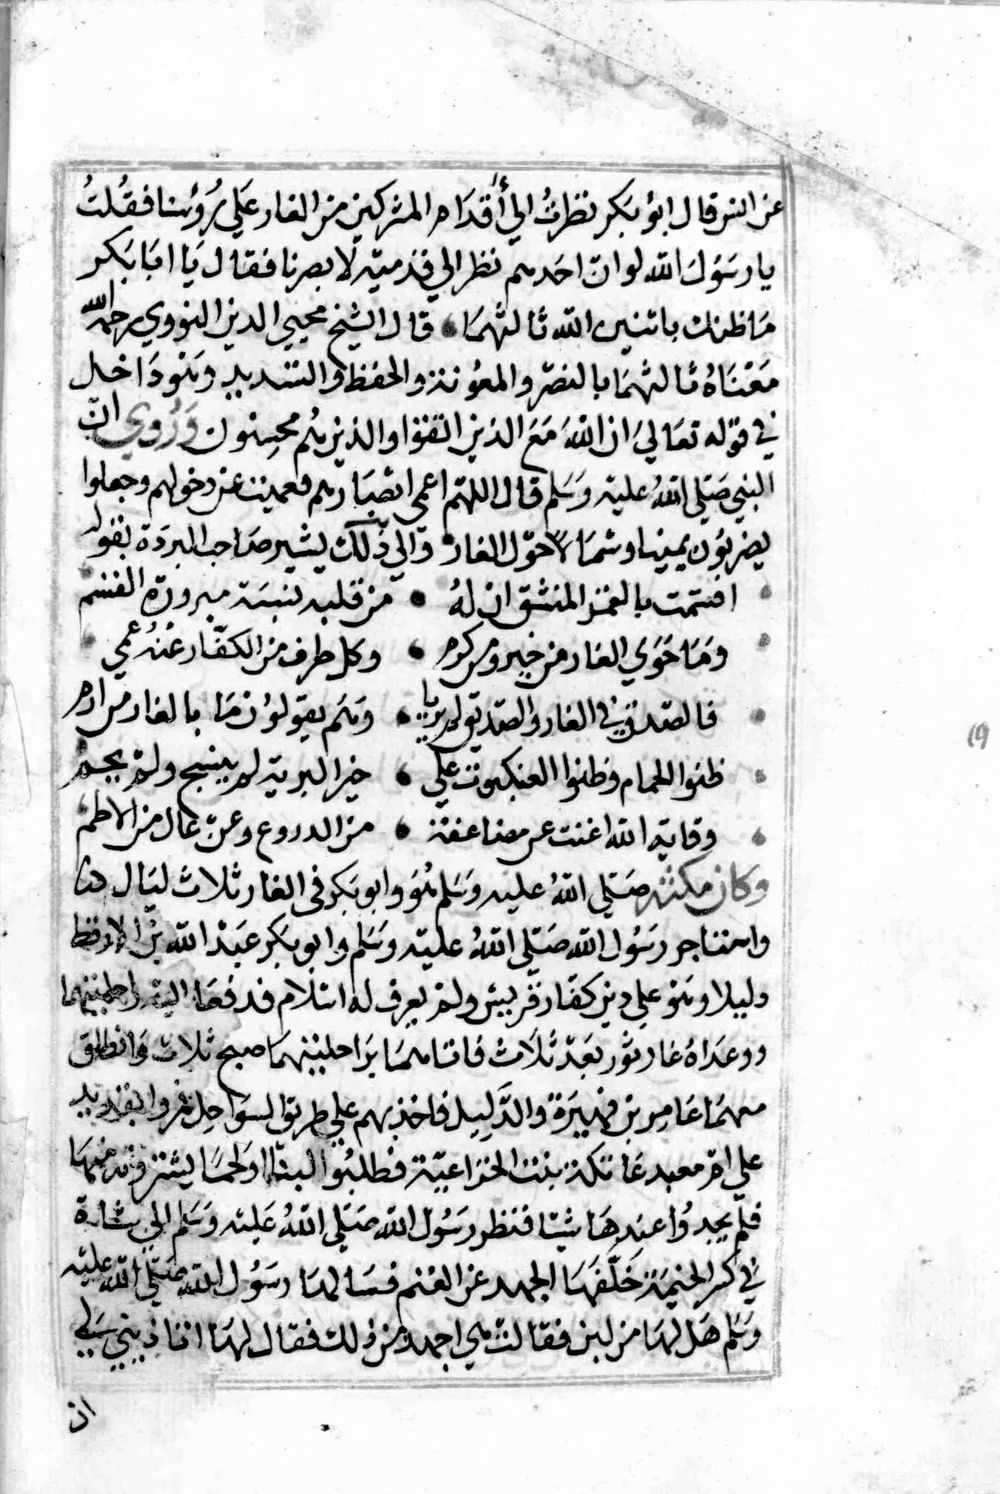 عن انس قال ابو بكر نظرتُ الي أقدام المشركين من الغار علي رؤسنا فقُلتُ
يا رسول الله لو ان احدهم نظر الي قدميه لابصرنا فقال يا ابا بكر
ما ظنك باثنين الله ثالثهما قال الشيخ محيي الدين النووي رحمه الله
معناهُ ثالثهما بالنصر والمعونة والحفظ والتسديد وهو داخل
في قوله تعالي ان الله مع الذين اتقوا والذين هم محسنون ورُوي انّ
النبي صلي اللهُ عليه وسلم قال اللهم اعمي ابصارهم فعميت عن دخولهم وجعلوا
يضربون يمينا وشمالا حول الغار والي ذلك يشير صاحب البردة بقوله
اقسمت بالقمر المنشق ان لهُ • من قلبه نسبة مبرورة القسم
وما حَوَي الغار من خير ومن كرم • وكل طرف من الكفّار عنهُ عمي
فالصدق في الغار والصديق لم يريا • وهم يقولون ما بالغار من ارم
ظنوا الحمام وظنوا العنكبوت علي • خير البرية لم ينسج ولم يحم
وقاية الله اغنت عن مضاعفة • من الدروع وعن عال من الاطم
وكان مكثه صلي اللهُ عليه وسلم هُو وابو بكر في الغار ثلاث ليال
واستاجر رسُول الله صلي اللهُ عليه وسلم وابو بكر عبد الله بن الارقط
دليلا وهو علي دين كفار قريش ولم يعرف له اسلام فدفعا اليه راحلتيهما
ووعداهُ غار ثور بعد ثلاث فاتاهما براحلتيهما صبح ثلاث وانطلق
معهما عامر بن فهيرة والدّليل فاخذ بهم علي طريق السواحل فمروا بقديد
علي ام معبد عاتكة بنت الخزاعية فطلبوا لبنا او لحما يشترونه منها
فلم يجدُوا عندها شيا فنظر رسُول الله صلي اللهُ عليه وسلم الي شاة
في كسر الخيمة خَلّفها الجهد عن الغنم فسالها رسُول الله صلي الله عليه
وسلم هل لها من لبن فقالت هي اجهد من ذلك فقال لها اتاذنين لي
ان